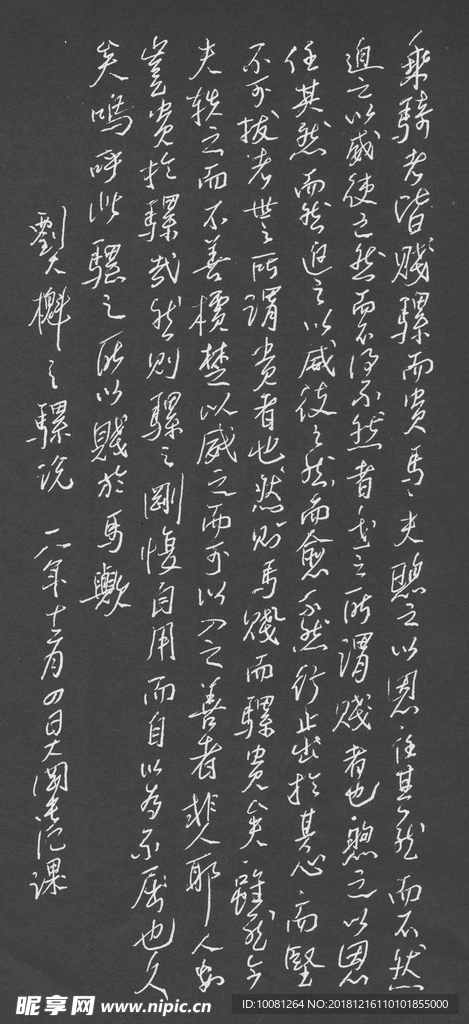 乘騎者皆賤騾而貴馬、夫煦之以恩任其然而不然
迫之以威使之然而不得不然者世之所謂賤者也煦之以恩
任其然而然迫之以威使之然而愈不然行止出於其心而堅
不可拔者世之所謂貴者也然則馬賤而騾貴矣雖然今
夫軼之而不善檟楚以威之而可以入之善者非人耶人
豈貴於騾哉然則騾之剛愎自用而自以為不屈也久
矣嗚呼此騾之所以賤於馬歟
劉大櫆之騾说 一八年十二月四日大 课
昵享网 www.nipic.cn
ID:10081264 NO:20181216110101855000